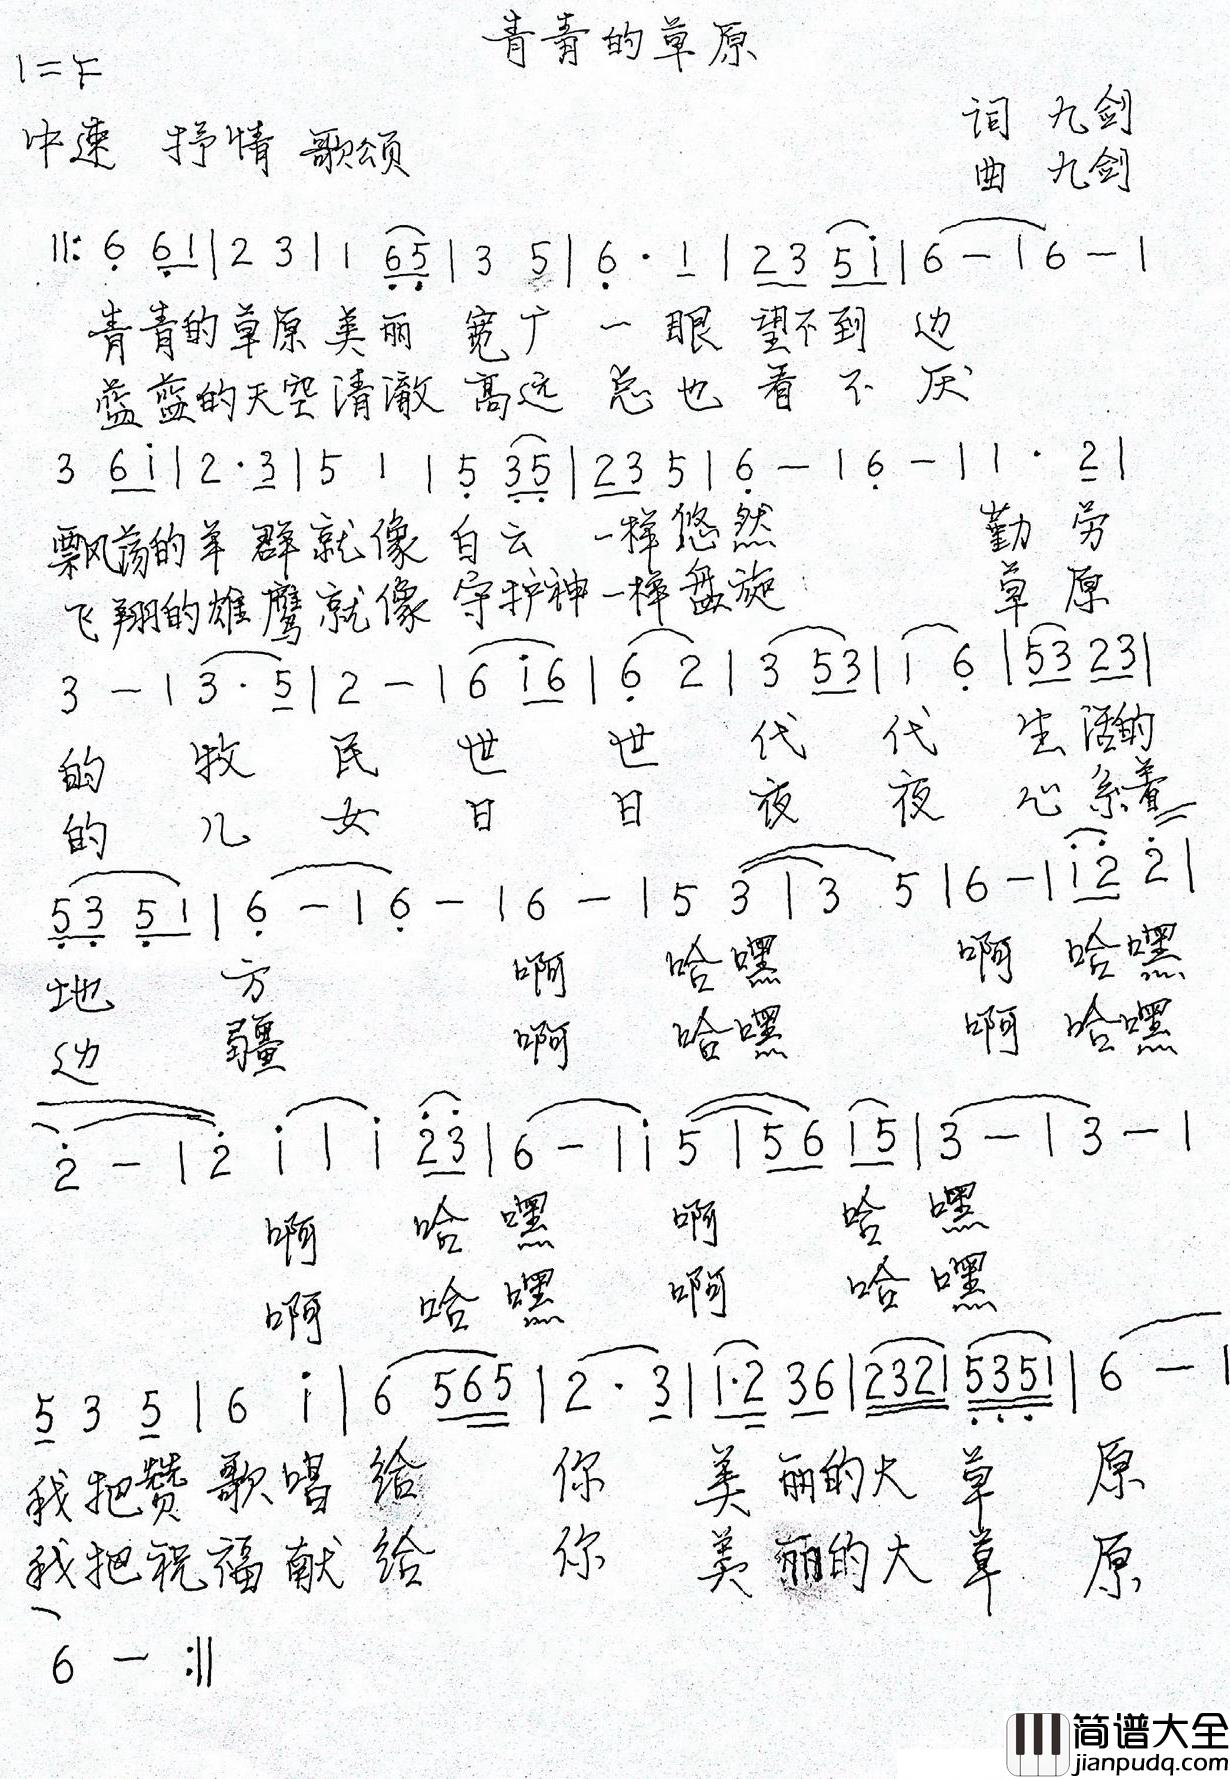 青青的草原
1=F
中速 抒情 歌颂
词 九剑
曲 九剑
||: 6 6 1 | 2 3 | 1 6 5 | 3 5 | 6 · 1 | 2 3 5 i | 6 — | 6 — |
青青的草原美丽 宽广 一眼望不到 边
蓝蓝的天空清澈 高远 总也看不 厌
3 6 i | 2 · 3 | 5 1 | 5 3 5 | 2 3 5 | 6 — | 6 — | 1 · 2 |
飘荡的羊群就像白云 一样悠然 勤劳
飞翔的雄鹰就像守护神一样盘旋 草原
3 — | 3 · 5 | 2 — | 6 i 6 | 6 2 | 3 5 3 | 1 6 | 5 3 2 3 |
的 牧 民 世 世 代 代 生活的
的 儿 女 日 日 夜 夜 心系着
5 3 5 1 | 6 — | 6 — | 6 — | 5 3 | 3 5 | 6 — | i 2 2 |
地 方 啊 哈嘿 啊 哈嘿
边 疆 啊 哈嘿 啊 哈嘿
2 — | 2 i | i 2 3 | 6 — | i 5 | 5 6 1 5 | 3 — | 3 — |
啊 哈 嘿 啊 哈 嘿
啊 哈 嘿 啊 哈 嘿
5 3 5 | 6 i | 6 5 6 5 | 2 · 3 | 1 · 2 3 6 | 2 3 2 1 5 3 5 1 | 6 — |
我把赞歌唱给 你 美丽的大草 原
我把祝福献给 你 美丽的大草 原
6 — :||
简谱大全
jianpudq.com